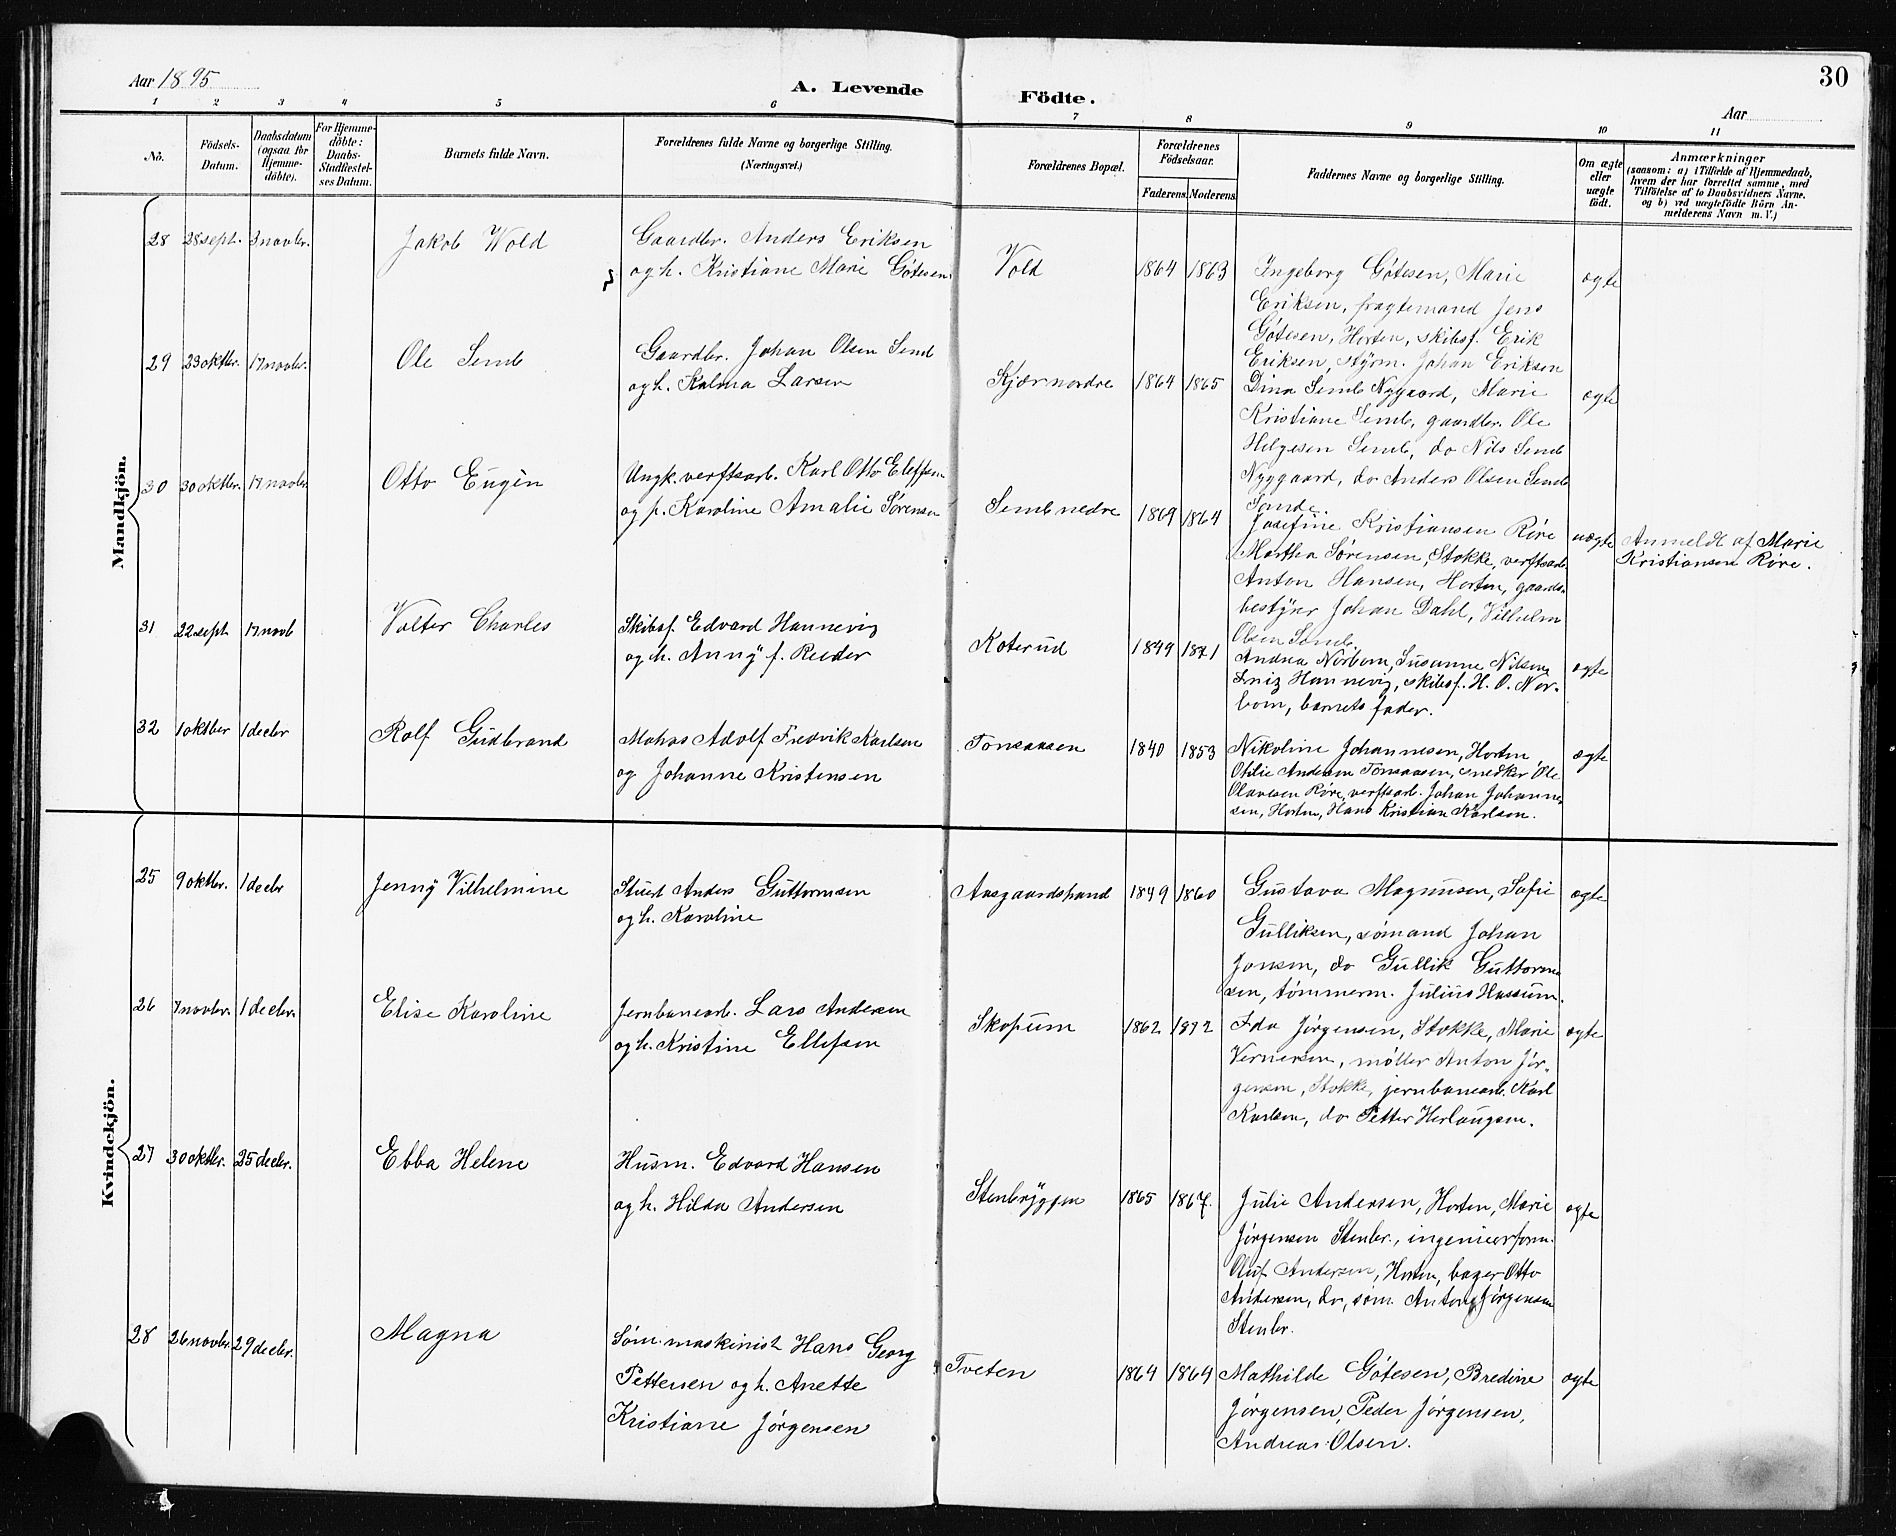 30
Aar 1895
A. Levende Födte.
Aar
1 2 3 4 5 6 7 8 9 10 11
No.
Födsels-Datum.
Daabsdatum (ogsaa for Hjemme-döbte).
For Hjemme-döbte: Daabs-Stadfæstel-ses Datum.
Barnets fulde Navn.
Forældrenes fulde Navne og borgerlige Stilling.
(Næringsvei.)
Forældrenes Bopæl.
Forældrenes Födselsaar.
Faderens. Moderens.
Faddernes Navne og borgerlige Stilling.
Om ægte eller uægte födt.
Anmærkninger
(saasom: a) i Tilfælde af Hjemmedaab,
hvem der har forrettet samme, med
Tilföielse af to Daabsvidners Navne.
og b) ved uægtefödte Börn An-
melderens Navn m. V.)
Mandkjön.
28 28 sept. 3 novbr. Jakob Wold
Gaardbr. Anders Eriksen
og h. Kristiane Marie Götesen
Vold 1864 1863
Ingeborg Götesen, Marie
Eriksen, fragtemand Jens
Götesen, Horten, skibsf. Erik
Eriksen, styrm. Johan Eriksen
ægte
29 23 oktbr. 17 novbr. Ole Semb
Gaardbr. Johan Olsen Semb
og h. Kalma Larsen
Kjær nordre 1864 1865
Dina Semb Nyggaard, Marie
Kristiane Semb, gaardbr. Ole
Helgesen Semb, do Nils Semb
Nyggaard, do Anders Olsen Semb
Sønde.
ægte
30 30 oktbr. 17 novbr. Otto Eugèn
Ungk. verftsarb. Karl Otto Eleffsen
og p. Karoline Amalie Sørensen
Semb nedre 1869 1864
Josefine Kristiansen Røre
Martha Sørensen, Stokke, verftsarb.
Anton Hansen, Horten, gaards-
bestyrer Johan Dahl, Vilhelm
Olsen Semb.
uægte
Anmeldt af Marie
Kristiansen Røre.
31 22 sept 17 novb Valter Charles
Skibsf. Edvard Hannevig
og h. Anny f. Reeder
Koterud 1849 1871
Andrea Norbom, Susanne Nilsen,
Hannevig, skibsf. H. O. Nor-
bom, barnets fader.
ægte
32 1 oktber 1 decbr Rolf Gudbrand
Adolf Fredrik Karlsen
og Johanne Kristensen
Tonsaasen 1840 1853
Nikoline Johannesen, Horten,
Othlie Andersen Tonsaasen, snedker Ole
Olavesen Røre, verftsarb. Johan Johanne-
sen, Horten, Hans Kristian Karlsen.
ægte
Kvindekjön.
25 9 oktbr. 1 decbr Jenny Vilhelmine
Stuert Anders Guttormsen
og h. Karoline
Aasgaardstrand 1849 1860
Gustava Magnusen, Sofie
Gulliksen, sømand Johan
Jonsen, do Gullik Guttorm-
sen, tømmerm. Julius Hassum.
ægte
26 7 novbr. 1 decbr. Elise Karoline
Jernbanearb. Lars Andersen
og h. Kristine Ellefsen
Skopum 1862 1872
Ida Jørgensen, Stokke, Marie
Vernersen, møller Anton Jør-
gensen, Stokke, jernbanearb. Karl
Karlsen, do Petter Herlaugsen.
ægte
27 30 oktbr. 25 decbr. Ebba Helene
Husm. Edvard Hansen
og h. Hilda Andersen
Stenbryggen 1865 1867.
Julie Andersen, Horten, Marie
Jørgensen Stenbr., ingeniørform.
Oluf Andersen, Horten, bager Otto
Andersen, do, søm. Anton Jørgensen
Stenbr.
ægte
28 26 novbr. 29 decbr. Magna
Søm. maskinist Hans Georg
Pettersen og h. Anette
Kristiane Jørgensen
Tveten 1864 1864
Mathilde Götesen, Bredine
Jørgensen, Peder Jørgensen,
Andreas Olsen.
ægte